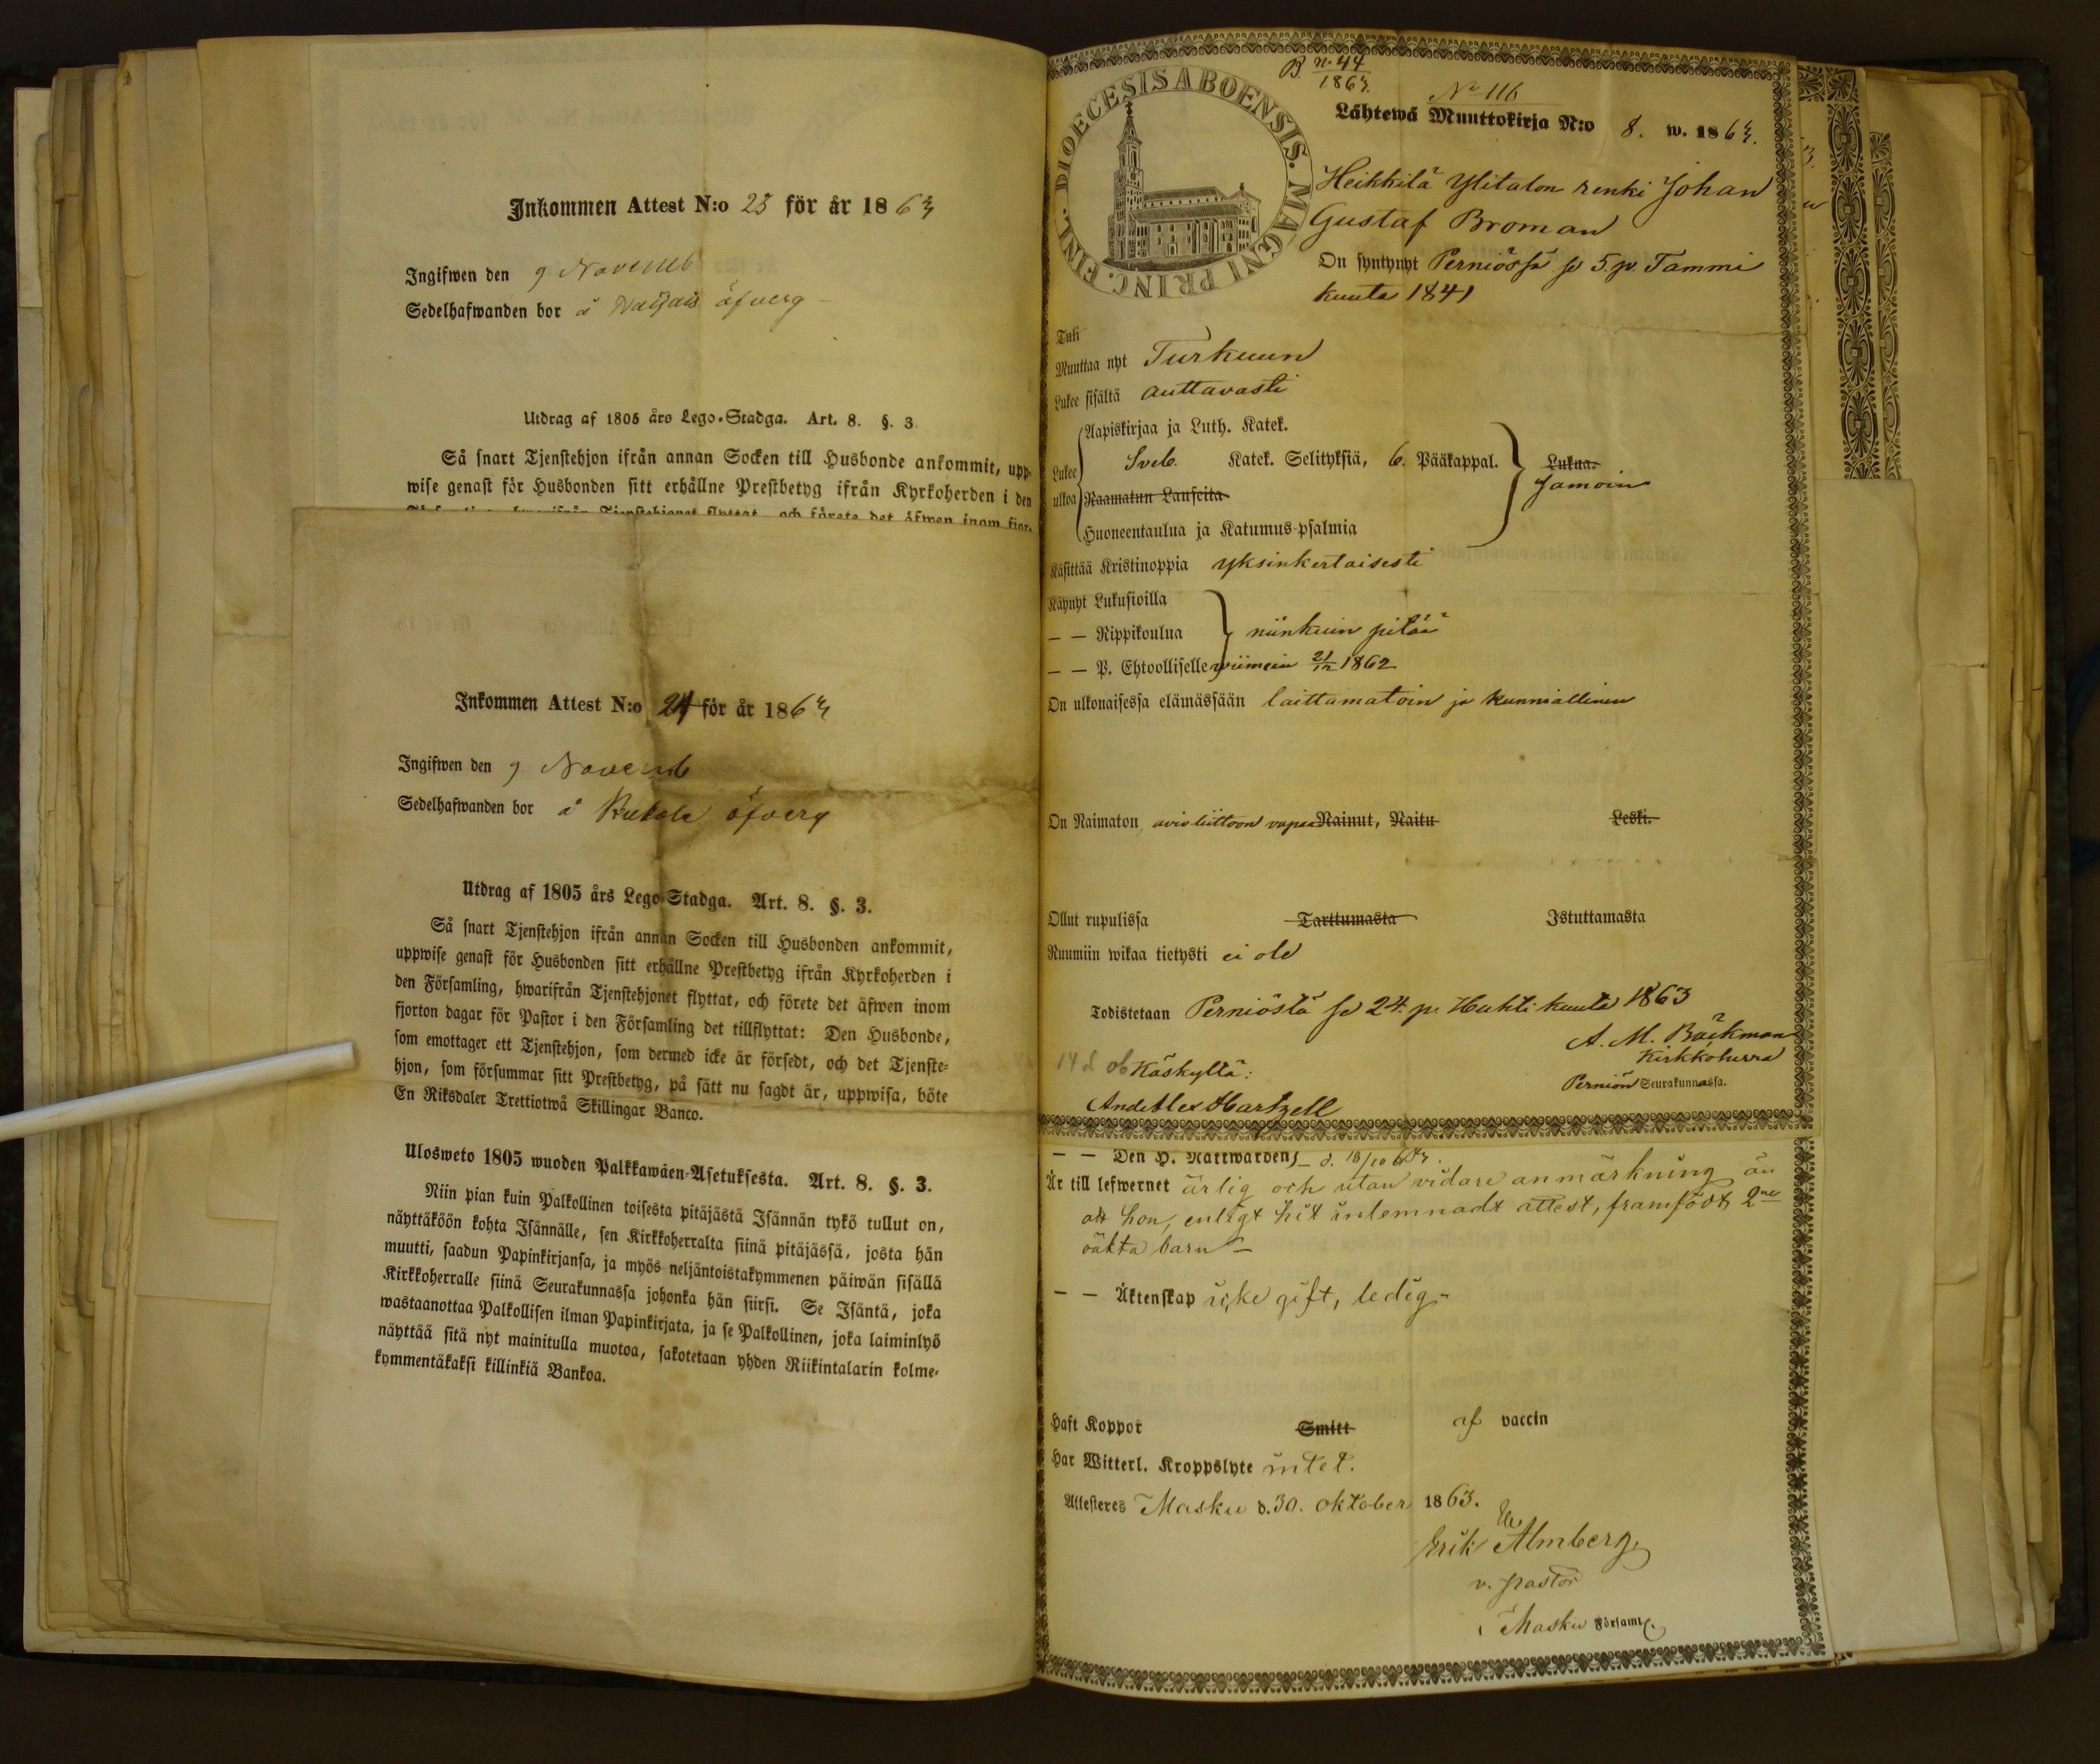 Inkommen Attest N:o 23 för år 1863
Ingifwen den 9 Novemb
Sedelhafwanden bor å öfverg
Utdrag af 1805 års Lego-Stadga. Art. 8. §. 3.
Så snart Tjenstehjon ifrån annan Socken till Husbonde ankommit, upp-
wise genast för Husbonden sitt erhållne Prestbetyg ifrån Kyrkoherden i den
Tjenstehjonet flyttat, och förete det äfwen inom fjor-
Inkommen Attest N:o 24 för år 1863
Ingifwen den 9 Novemb
Sedelhafwanden bor å öfverg
Utdrag af 1805 års Lego-Stadga. Art. 8. §. 3.
Så snart Tjenstehjon ifrån annan Socken till Husbonden ankommit,
uppwise genast för Husbonden sitt erhållne Prestbetyg ifrån Kyrkoherden i
den Församling, hwarifrån Tjenstehjonet flyttat, och förete det äfwen inom
fjorton dagar för Pastor i den Församling det tillflyttat: Den Husbonde,
som emottager ett Tjenstehjon, som dermed icke är försedt, och det Tjenste-
hjon, som försummar sitt Prestbetyg, på sätt nu sagdt är, uppwisa, böte
En Riksdaler Trettiotwå Skillingar Banco.
Ulosweto 1805 wuoden Palkkawäen-Asetuksesta. Art. 8. §. 3.
Niin pian kuin Palkollinen toisesta pitäjästä Isännän tykö tullut on,
näyttäköön kohta Isännälle, sen Kirkkoherralta siinä pitäjässä, josta hän
muutti, saadun Papinkirjansa, ja myös neljäntoistakymmenen päiwän sisällä
Kirkkoherralle siinä Seurakunnassa johonka hän siirsi. Se Isäntä, joka
wastaanottaa Palkollisen ilman Papinkirjata, ja se Palkollinen, joka laiminlyö
näyttää sitä nyt mainitulla muotoa, sakotetaan yhden Riikintalarin kolme-
kymmentäkaksi killinkiä Bankoa.
DIOECESIS ABOENSIS. MAGNI PRINC. FINL.
B. n. 44
1863.
No 116
Lähtewä Muuttokirja N:o 8. w. 1863.
Heikkilä Ylitalon renki Johan
Gustaf Broman
On syntynyt Perniössä se 5. p. Tammi
kuuta 1841
Tuli
Muuttaa nyt Turkuun
Lukee sisältä auttavasti
Lukee ulkoa
Aapiskirjaa ja Luth. Katek.
Sveb. Katek. Selityksiä, 6. Pääkappal.
Raamatun Lauseita
Huoneentaulua ja Katumus-psalmia
Lukua.
Samoin
Käsittää Kristinoppia yksinkertaisesti
Käynyt Lukusioilla
— — Rippikoulua niinkuin pitää
— — P. Ehtoolliselle wiimein 21/12 1862
On ulkonaisessa elämässään laittamatoin ja kunniallinen
On Naimaton, avioliittoon vapaa Nainut, Naitu Leski.
Ollut rupulissa Tarttumasta Istuttamasta
Ruumiin wikaa tietysti ei ole
Todistetaan Perniöstä se 24. p. Huhti kuuta 1863
A. M. Bäckman
Kirkkoherra
Perniön Seurakunnassa.
Käskyltä:
And. Alex Hartzell
— — Den H. Nattwarden d. 18/10 63.
Är till lefwernet ärlig och utan vidare anmärkning än
att hon, enligt hit inlemnadt attest, framfödt 2ne
oäkta barn —
— — Äktenskap icke gift, ledig —
Haft Koppor Smitt af vaccin
Har Witterl. Kroppslyte intet.
Attesteres Masku d. 30. oktober 1863.
Erik Almberg.
v. pastor
i Masku Församl.